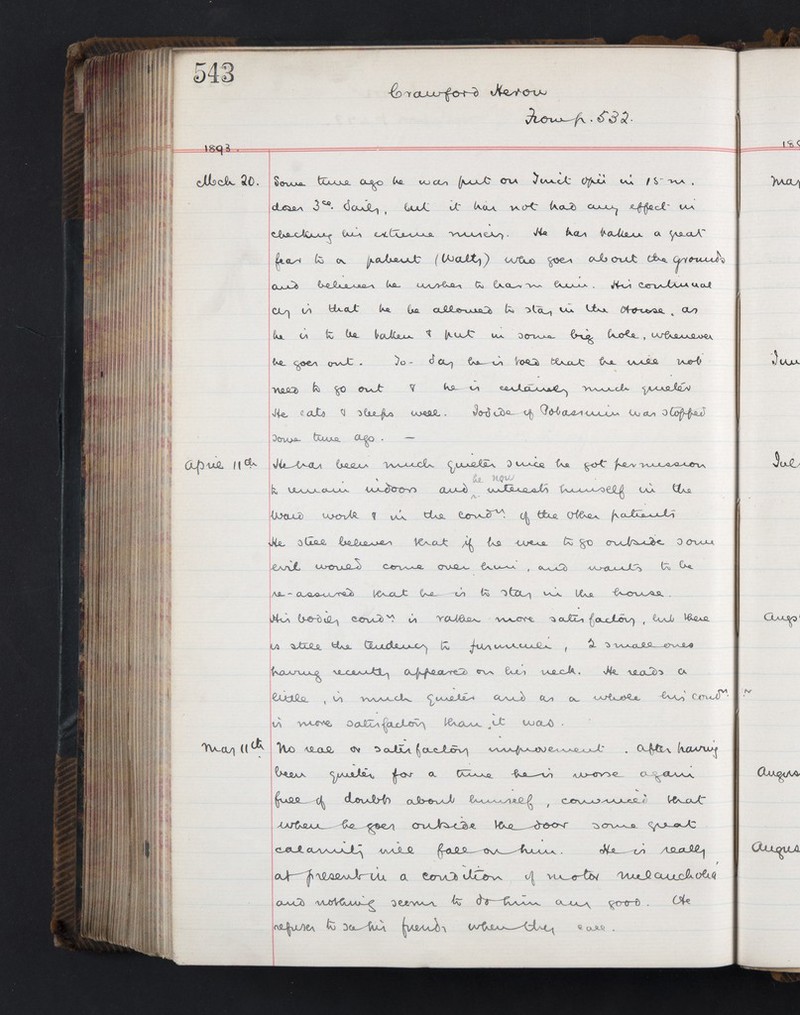 543
Crawford Heron
From p. 532.
1893.
Mch 20. Some time ago he was put on Tinct Opii in 15 m.
doses 3ce. daily, but it has not had any effect in
checking his extreme misery. He has taken a great
fear to a patient (Watts) who goes about the grounds
and believes he wishes to harm him. His continual
cry is that he be allowed to stay in the House, as
he is to be taken & put in some big hole, whenever
he goes out. To-day he is told that he will not
need to go out & he is certainly much quieter
He eats & sleeps well. Iodide of Potassium was stopped
some time ago. —
April 11th He has been much quieter since he got permission
to remain indoors and he now interests himself in the
Ward work & in the condn. of the other patients
He still believes that if he were to go outside some
evil would come over him, and wants to be
re-assured that he is to stay in the house.
His bodily condn. is rather more satisfactory, but there
is still the tendency to furunculi, 2 small ones
having recently appeared on his neck. He reads a
little, is much quieter and as a whole his condn.
is more satisfactory than it was.
May 11th No real or satisfactory improvement. After having
been quieter for a time he is worse again
full of doubts about himself, convinced that
when he goes outside the door some great
calamity will fall on him. He is really
at present in a condition of motor melancholia
and nothing seems to do him any good. He
refuses to see his friends when they call.